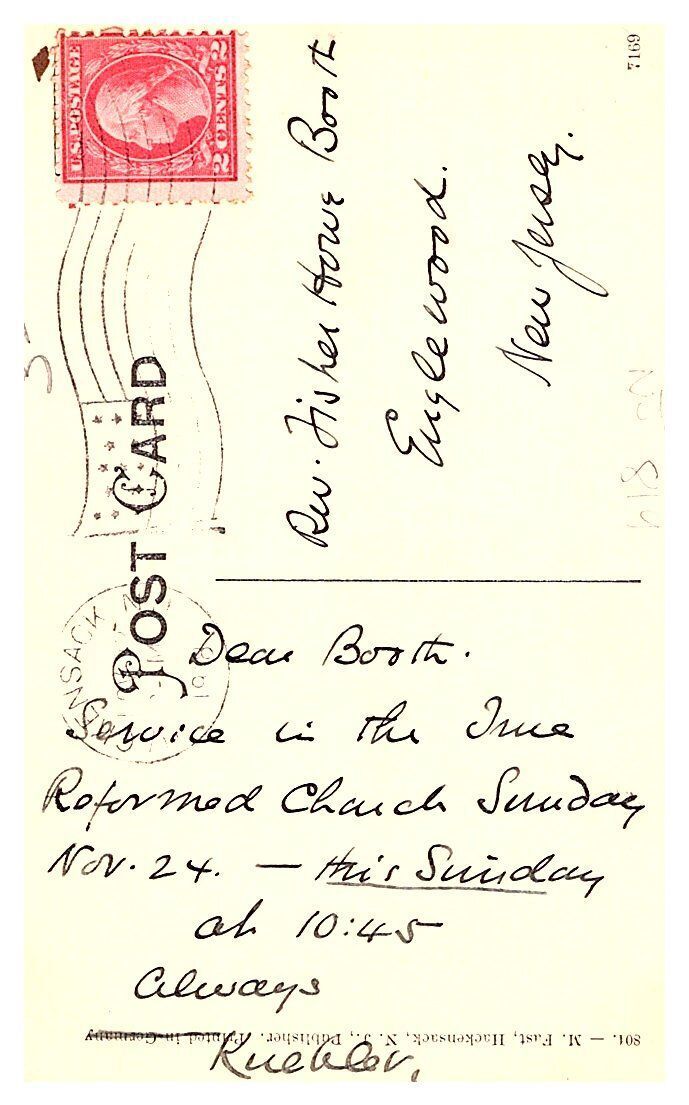 U.S. POSTAGE
2 CENTS 2
7169
POST CARD
Rev. Fisher Howe Booth
Englewood.
New Jersey.
Dear Booth.
Service in the True
Reformed Church Sunday
Nov. 24. — this Sunday
at 10:45
Always
Kuebler.
801. — M. Fast, Hackensack, N. J., Publisher. Printed in Germany